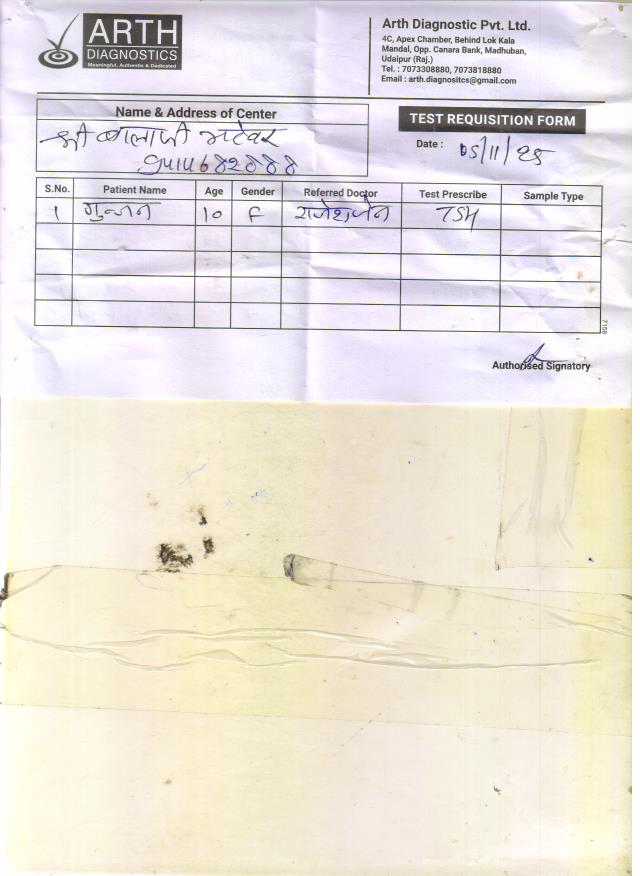 ARTH
DIAGNOSTICS
Meaningful, Authentic & Dedicated
Arth Diagnostic Pvt. Ltd.
4C, Apex Chamber, Behind Lok Kala
Mandal, Opp. Canara Bank, Madhuban,
Udaipur (Raj.)
Tel. : 7073308880, 7073818880
Email : arth.diagnositcs@gmail.com
Name & Address of Center
श्री बालाजी भटेवर
9414682888
TEST REQUISITION FORM
Date : 05/11/25
S.No. Patient Name Age Gender Referred Doctor Test Prescribe Sample Type
1 गुन्जन 10 F राजेश जैन TSH
7158
Authorised Signatory